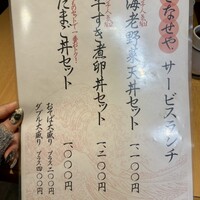 なせや サービスランチ
海老野菜天丼セット
一一〇〇円
牛すき煮卵丼セット
一二〇〇円
たまご丼セット
一〇〇〇円
おそば大盛り プラス二〇〇円
ダブル大盛り プラス三〇〇円